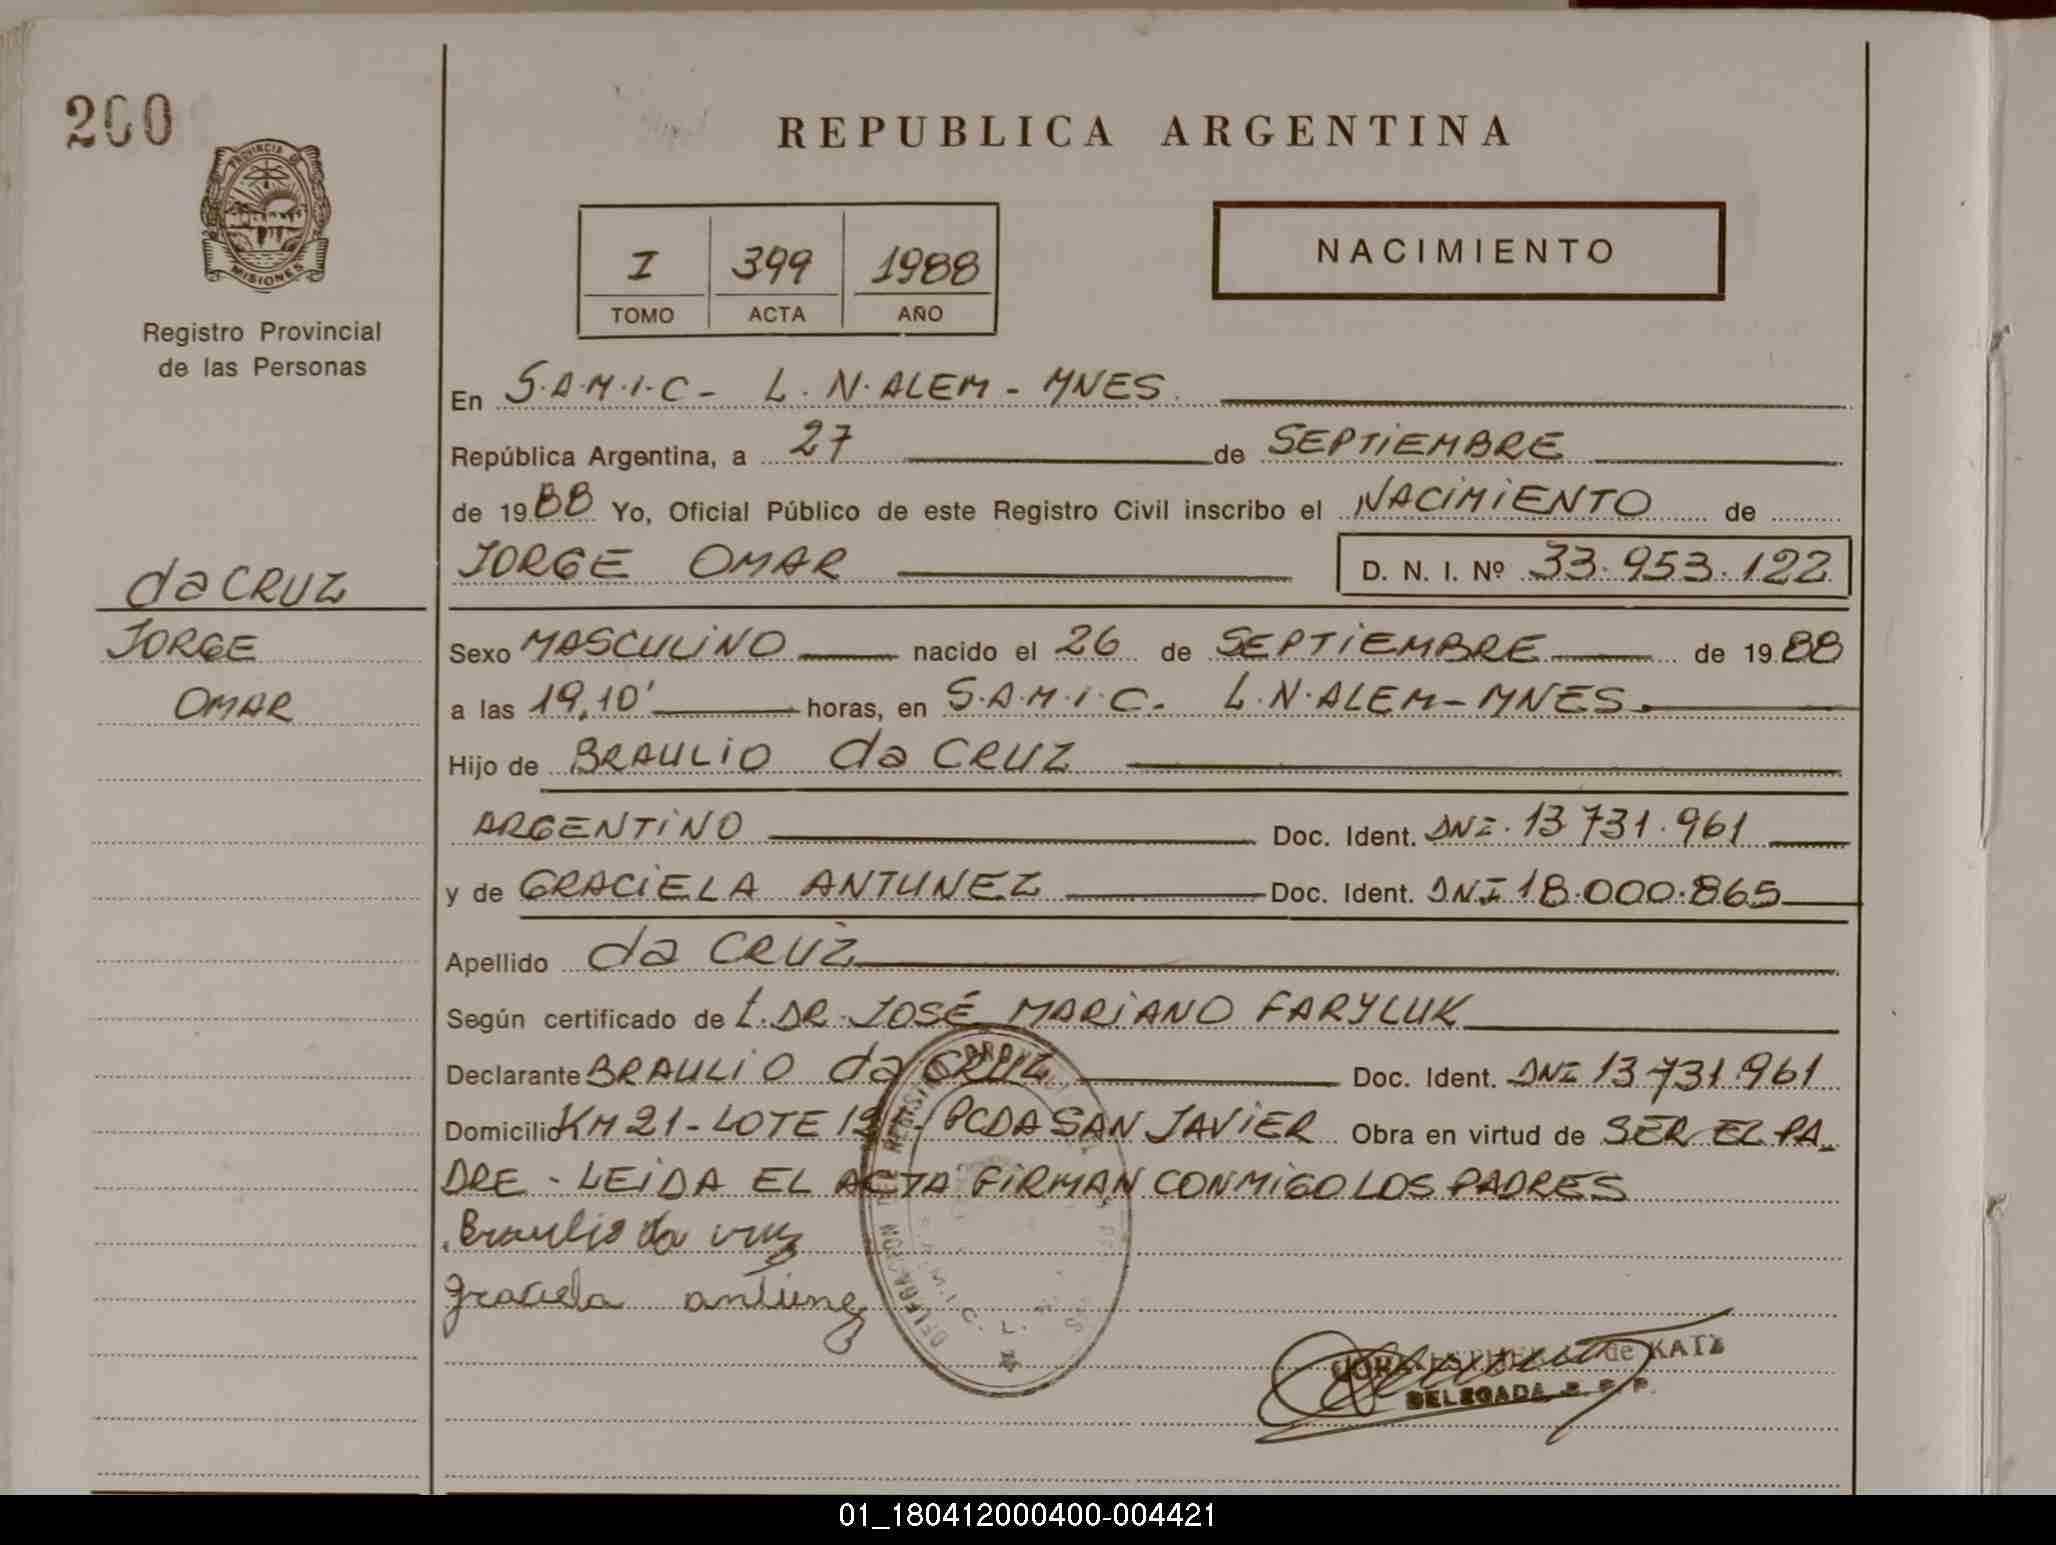 200
PROVINCIA DE
MISIONES
Registro Provincial
de las Personas
da CRUZ
JORGE
OMAR
REPUBLICA ARGENTINA
I 399 1988
TOMO ACTA AÑO
NACIMIENTO
En S.A.M.I.C - L.N. ALEM - MNES.
República Argentina, a 27 de SEPTIEMBRE
de 1988 Yo, Oficial Público de este Registro Civil inscribo el NACIMIENTO de
JORGE OMAR D. N. I. Nº 33.953.122
Sexo MASCULINO nacido el 26 de SEPTIEMBRE de 1988
a las 19,10' horas, en S.A.M.I.C. L.N. ALEM - MNES.
Hijo de BRAULIO da CRUZ
ARGENTINO Doc. Ident. DNI. 13.731.961
y de GRACIELA ANTUNEZ Doc. Ident. DNI 18.000.865
Apellido da CRUZ
Según certificado de t. DR. JOSÉ MARIANO FARYLUK
Declarante BRAULIO da CRUZ Doc. Ident. DNI 13.731.961
Domicilio KM 21 - LOTE PCDA SAN JAVIER Obra en virtud de SER EL PA_
DRE - LEIDA EL ACTA FIRMAN CONMIGO LOS PADRES
Braulio da cruz
Graciela antunez
de KATZ
DELEGADA R. P. P.
01_180412000400-004421